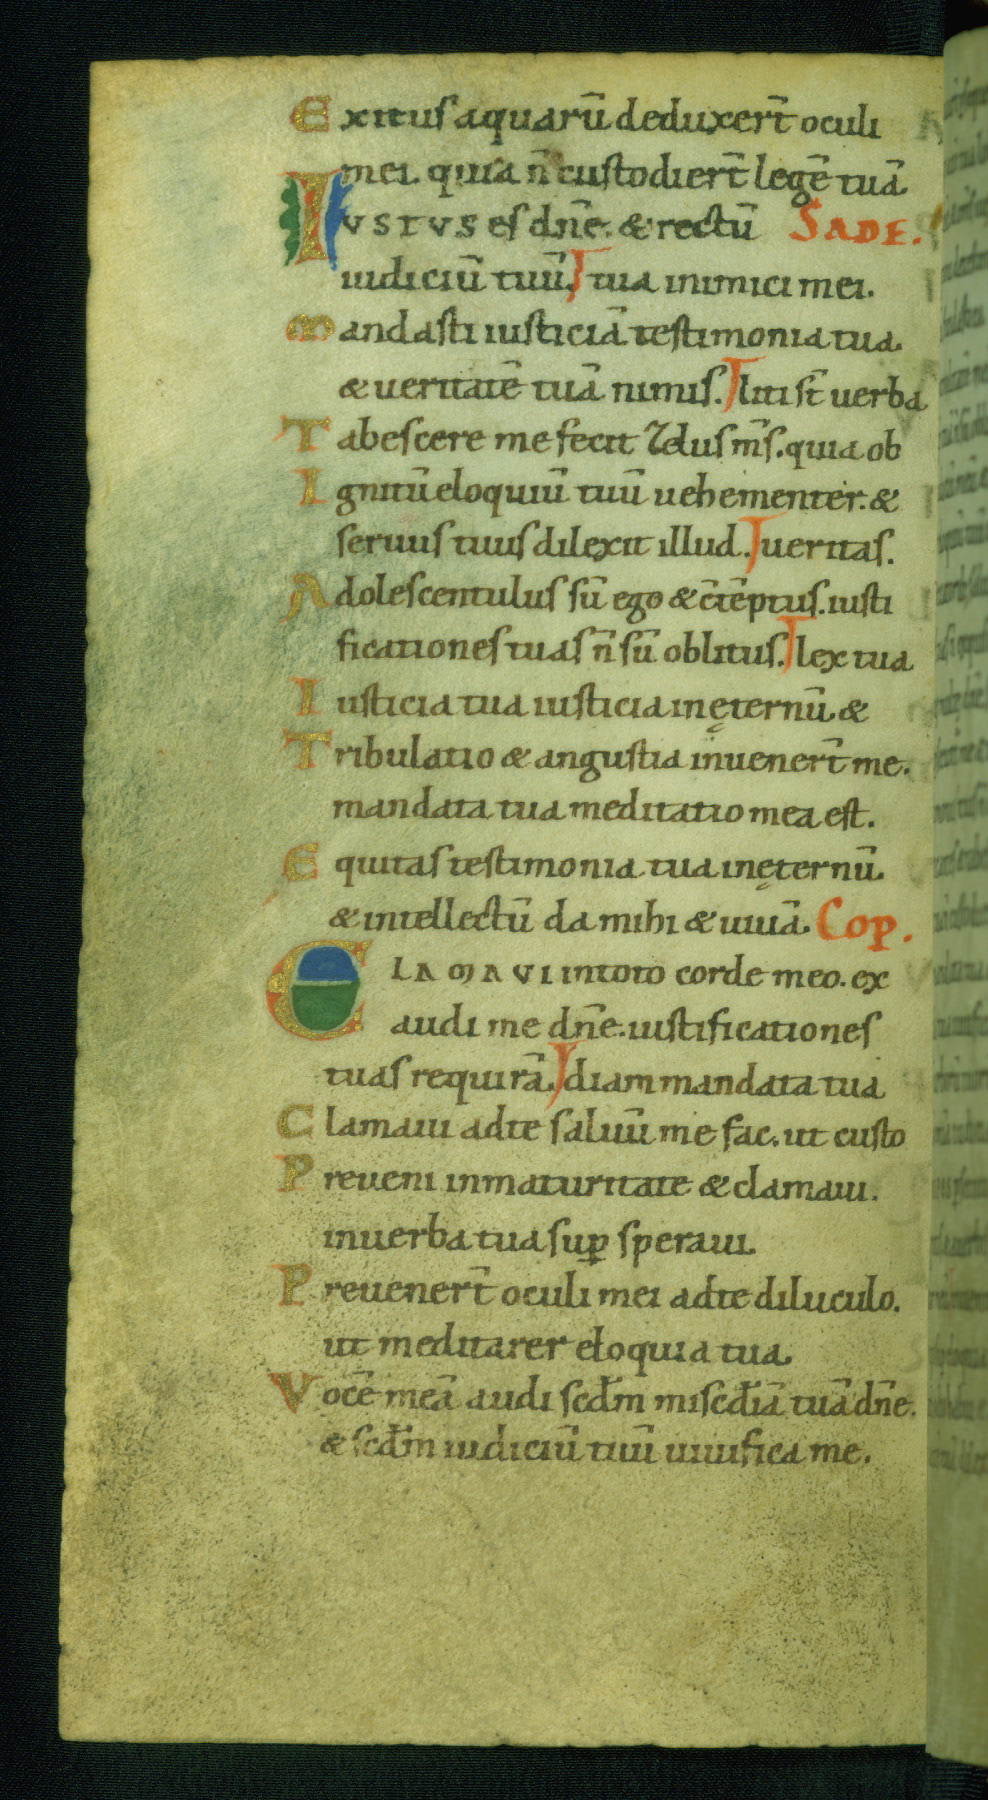 Exitus aquarū deduxer̄t oculi
mei. quia n̄ custodier̄t legē tuā
IVSTVS es dn̄e. & rectū SADE.
iudiciū tuū. tua inimici mei.
Mandasti iusticiā testimonia tua.
& ueritatē tuā nimis. liti st̄ uerba
Tabescere me fecit zelus m̄s. quia ob
Ignitū eloquiū tuū uehementer. &
seruus tuus dilexit illud. ueritas.
Adolescentulus sū ego & c̄tēptus. iusti
ficationes tuas n̄ sū oblitus. lex tua
Iusticia tua iusticia inęternū. &
Tribulatio & angustia inuener̄t me.
mandata tua meditatio mea est.
Equitas testimonia tua inęternū.
& intellectū da mihi & uiuā. Cop.
CLAMAVI intoto corde meo. ex
audi me dn̄e. iustificationes
tuas requirā. diam mandata tua
Clamaui adte saluū me fac. ut custo
Preueni inmaturitate & clamaui.
inuerba tua suꝑ speraui.
Preuener̄t oculi mei adte diluculo.
ut meditarer eloquia tua.
Vocē meā audi scd̄m miscd̄iā tuā dn̄e.
& scd̄m iudiciū tuū uiuifica me.